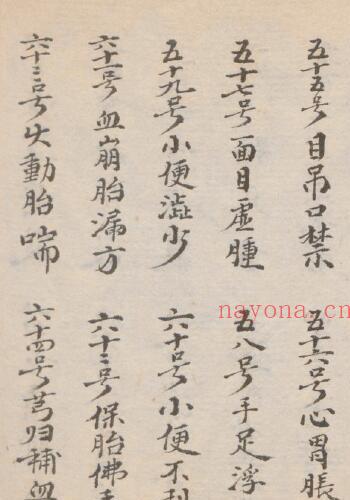 五十五号目吊口禁
五十六号心胃脹
五十七号面目虚腫
五八号手足浮
五十九号小便澁少
六十号小便不利
六十一号血崩胎漏方
六十二号保胎佛手
六十三号火動胎喘
六十四号芎归補血
nayona.cn